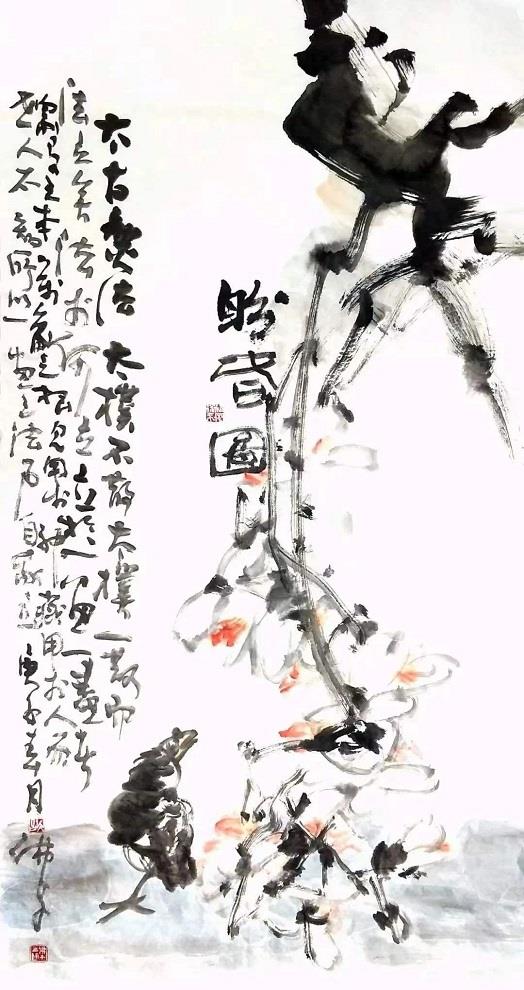 盼春圖
太古無法大樸不散大樸一散而
法立矣法於何立立於一畫一畫者
衆有之本萬象之根見用於神藏用於人而
世人不知所以一畫之法乃自我立 庚子春月